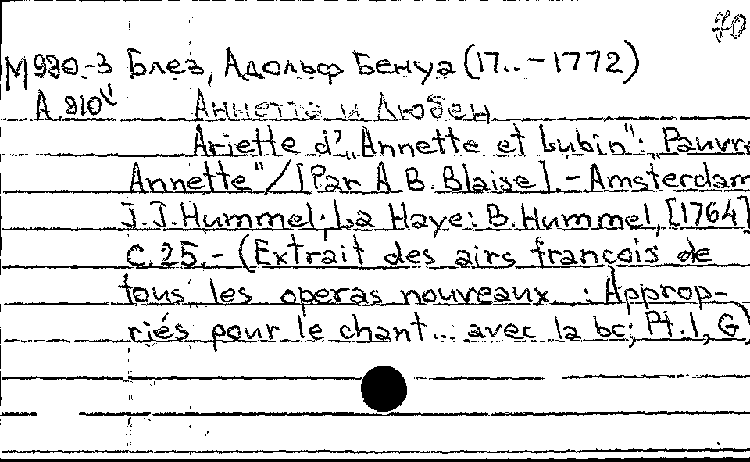 70
М980.-3 Блез, Адольф Бенуа (17..-1772)
А.810ᵛ Аннетта и Любен
Ariette d'„Annette et Lubin": „Pauvre
Annette"/[Par A B. Blaise].-Amsterdam
J.J.Hummel; La Haye: B.Hummel, [1764]
С.25.- (Extrait des airs françois de
tous les operas nouveaux : Approp-
riés pour le chant... avec la bc; Pt.1, G)